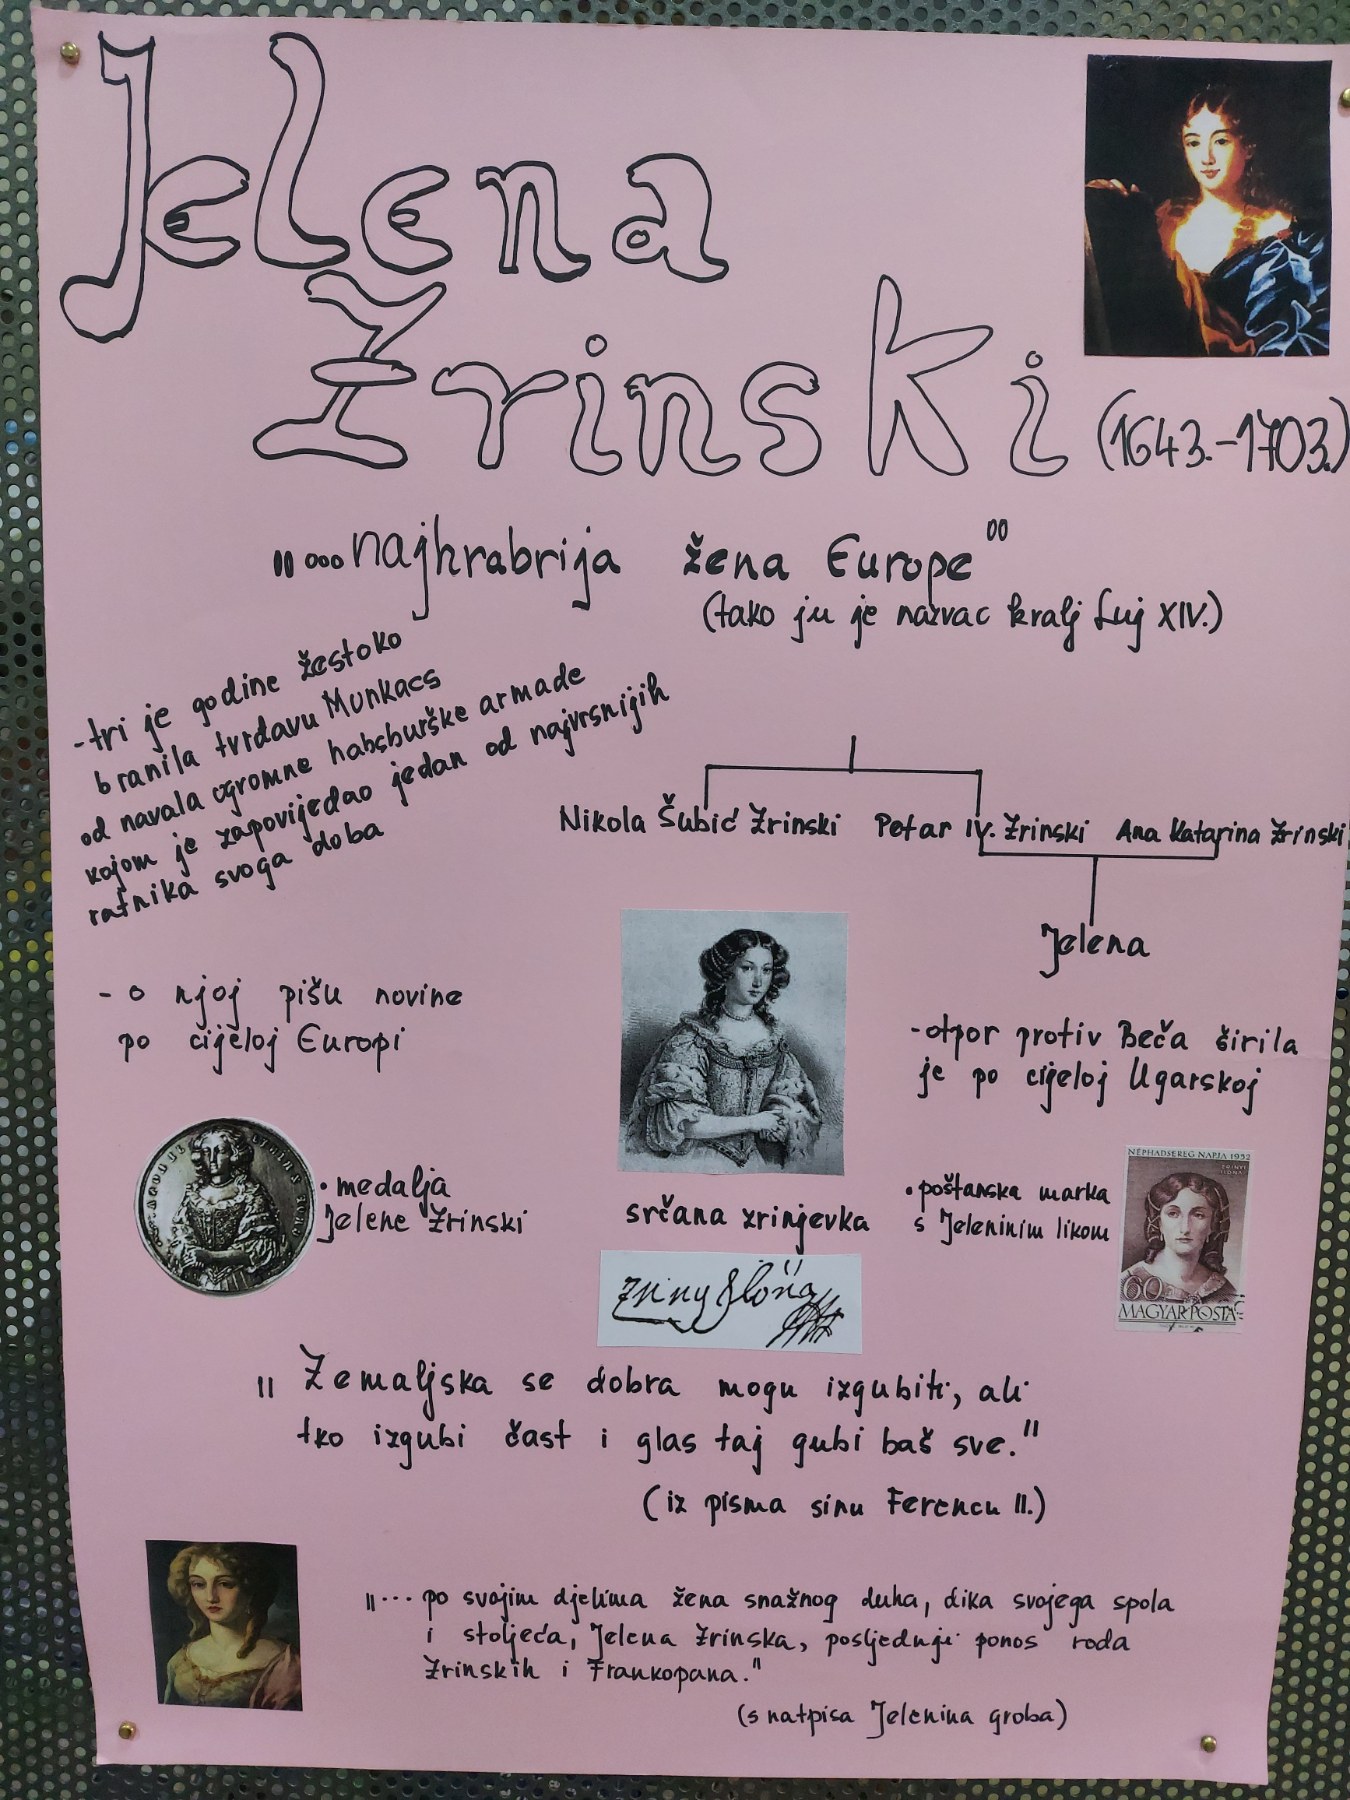 Jelena
Žrinski
(1643.-1703.)
"...najhrabrija žena Europe"
(tako ju je nazvao kralj Luj XIV.)
-tri je godine žestoko
branila tvrđavu Munkacs
od navala ogromne habsburške armade
kojom je zapovijedao jedan od najvrsnijih
ratnika svoga doba
Nikola Šubić Zrinski Petar IV. Zrinski Ana Katarina Zrinski
Jelena
- o njoj pišu novine
po cijeloj Europi
-otpor protiv Beča širila
je po cijeloj Ugarskoj
• medalja
Jelene Zrinski
srčana zrinjevka
• poštanska marka
s Jeleninim likom
NÉPHADSEREG NAPJA 1952
ZRINYI
ILONA
60
MAGYAR POSTA
Zriny Ilona
"Zemaljska se dobra mogu izgubiti, ali
tko izgubi čast i glas taj gubi baš sve."
(iz pisma sinu Ferencu II.)
"... po svojim djelima žena snažnog duha, dika svojega spola
i stoljeća, Jelena Zrinska, posljednji ponos roda
Zrinskih i Frankopana."
(s natpisa Jelenina groba)